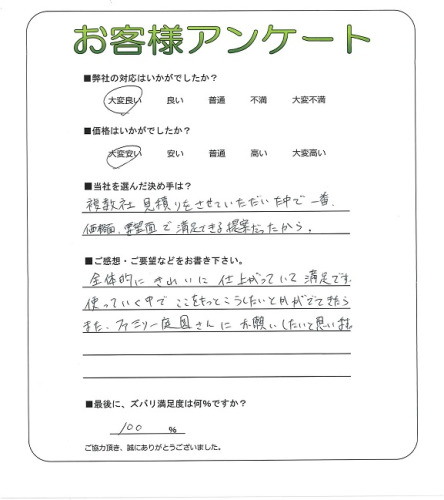 お客様アンケート
■弊社の対応はいかがでしたか?
大変良い 良い 普通 不満 大変不満
■価格はいかがでしたか?
大変安い 安い 普通 高い 大変高い
■当社を選んだ決め手は?
複数社 見積りをさせていただいた中で一番、
価格面、要望面で満足できる提案だったから。
■ご感想・ご要望などをお書き下さい。
全体的に きれいに 仕上がっていて 満足です。
使っていく中で ここをもっとこうしたいとかがでてきたら
また、ファミリー庭園さんに お願いしたいと思います。
■最後に、ズバリ満足度は何%ですか?
100 %
ご協力頂き、誠にありがとうございました。